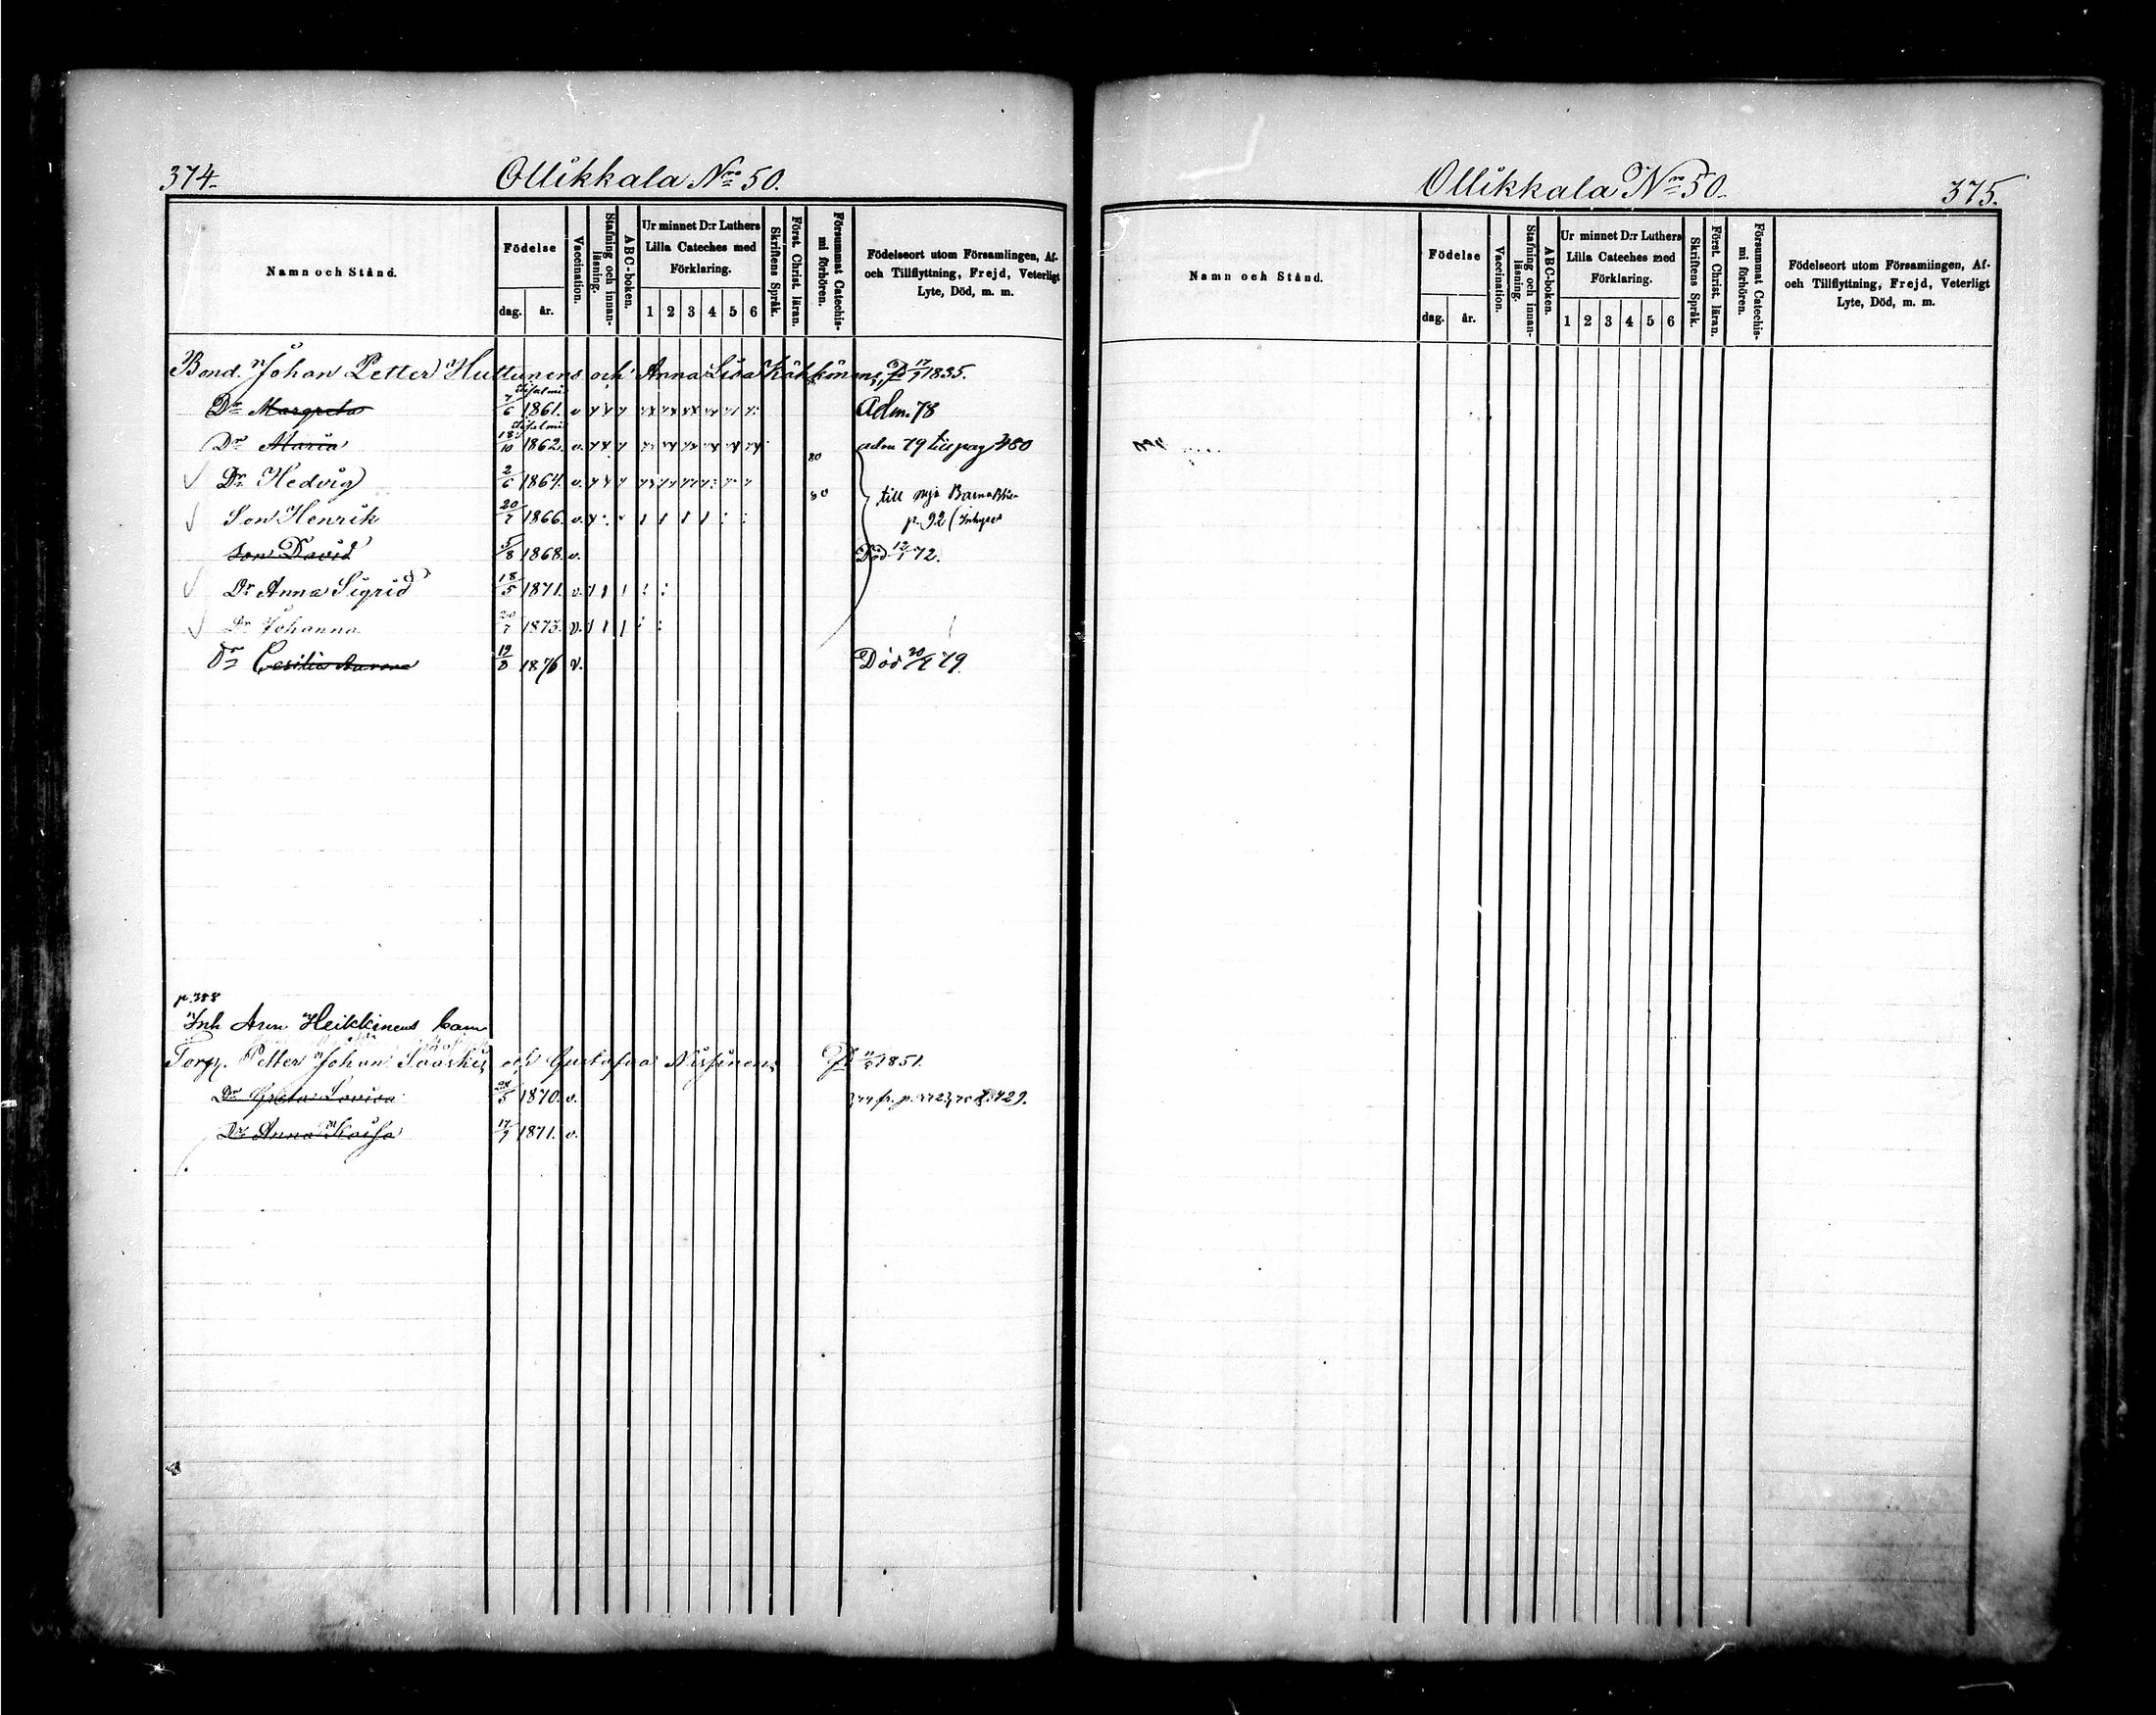 374.
Ollikkala No 50.
Namn och Stånd.
Födelse
dag. år.
Vaccination.
Stafning och innan-läsning.
ABC-boken.
Ur minnet D:r Luthers
Lilla Cateches med
Förklaring.
1 2 3 4 5 6
Skriftens Språk.
Först. Christ. läran.
Försummat Catechis-mi förhören.
Födelseort utom Församlingen, Af-
och Tillflyttning, Frejd, Veterligt
Lyte, Död, m. m.
Bond. Johan Petter Huttunens och Anna Lisa Kähkönens, 17/1 1835.
Dr Margreta 7/6 1861. v Adm. 78
Dr Maria 18/10 1862. v. adm 79 till pag 380
Dr Hedvig 2/6 1864. v. 80
Son Henrik 20/7 1866. v. 80 till nya Barnab
p. 92 (Inhyses
Son David 5/8 1868. v. Död 12/1 72.
Dr Anna Sigrid 18/5 1871. v.
Dr Johanna 20/7 1873. v.
Dr Cesilia Aurora 12/8 1876 v. Död 20/4 79.
p. 388
Inh Heikkinens barn
Torp. Petter Johan Saaski och Gustafva Nissinens 1851.
Dr Greta Lovisa 28/5 1870. v. p. 429.
Dr Anna Kaisa 17/9 1871. v.
Ollikkala No 50.
375.
Namn och Stånd.
Födelse
dag. år.
Vaccination.
Stafning och innan-läsning.
ABC-boken.
Ur minnet D:r Luthers
Lilla Cateches med
Förklaring.
1 2 3 4 5 6
Skriftens Språk.
Först. Christ. läran.
Försummat Catechis-mi förhören.
Födelseort utom Församlingen, Af-
och Tillflyttning, Frejd, Veterligt
Lyte, Död, m. m.